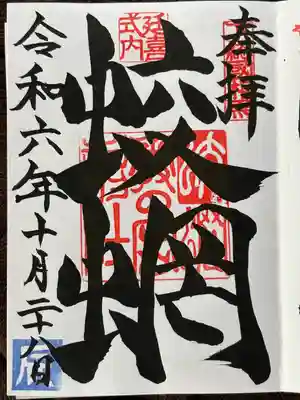 奉拝
蛟蝄
延喜
式内
令和六年十月二十八日
辰